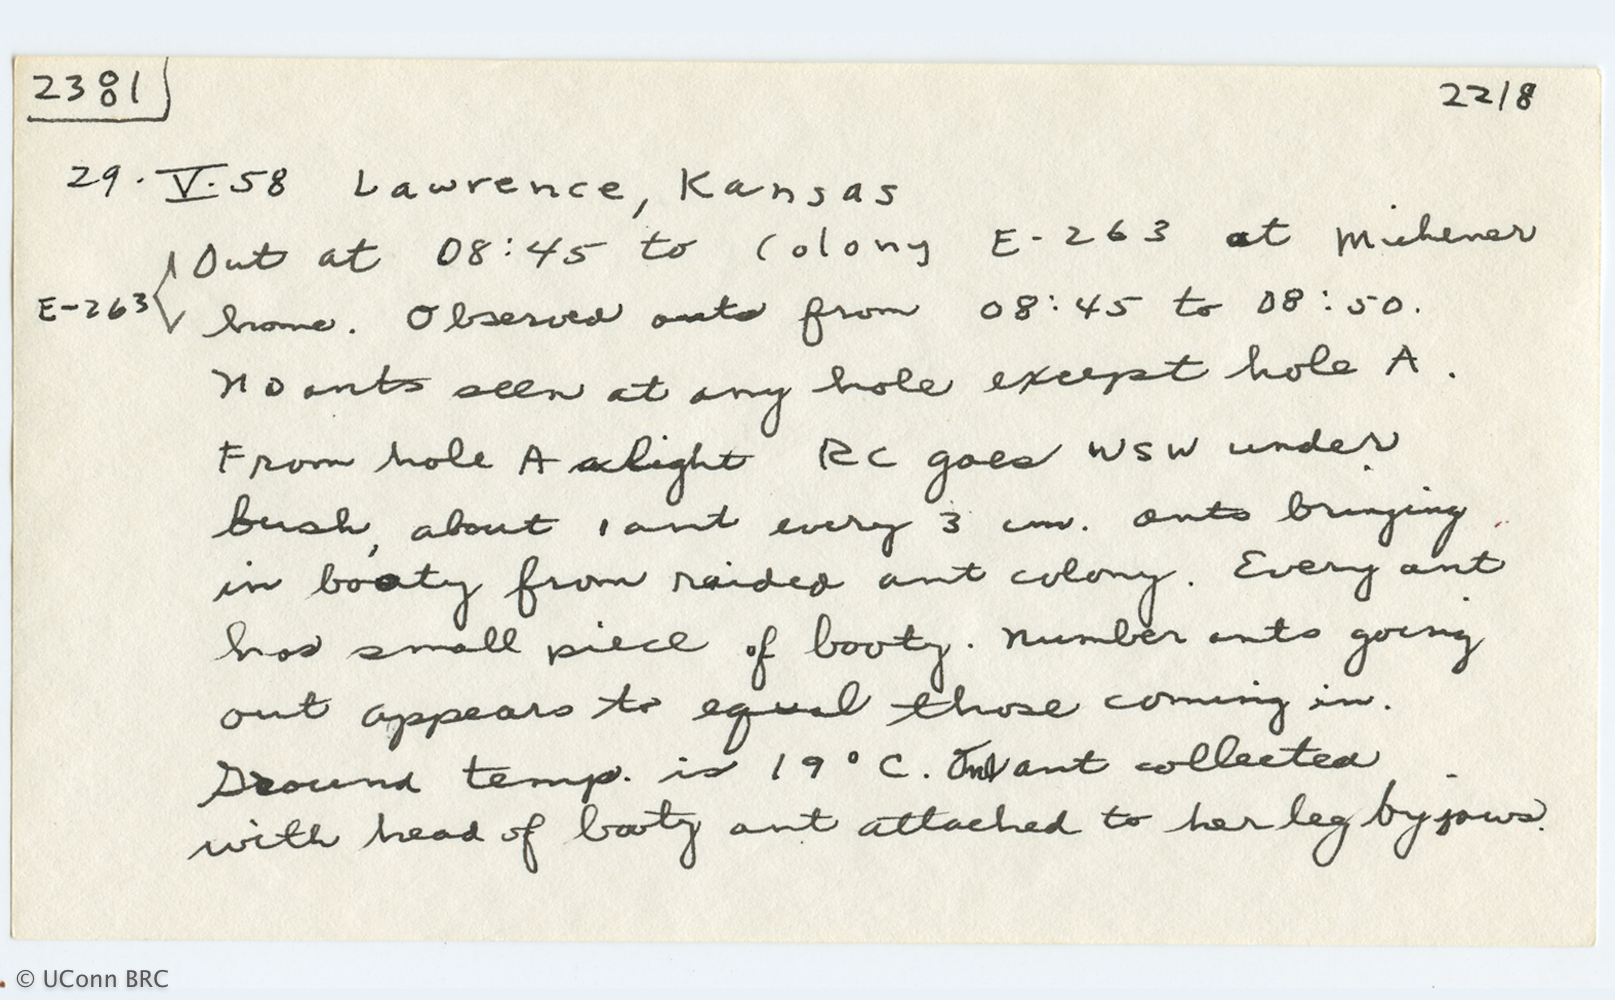 2381
2218
29.V.58 Lawrence, Kansas
Out at 08:45 to Colony E-263 at Michener
E-263
home. Observed ants from 08:45 to 08:50.
No ants seen at any hole except hole A.
From hole A a light RC goes WSW under
bush, about 1 ant every 3 cm. Ants bringing
in booty from raided ant colony. Every ant
has small piece of booty. Number ants going
out appears to equal those coming in.
Ground temp. is 19°C. ant collected
with head of booty ant attached to her leg by jaws.
© UConn BRC